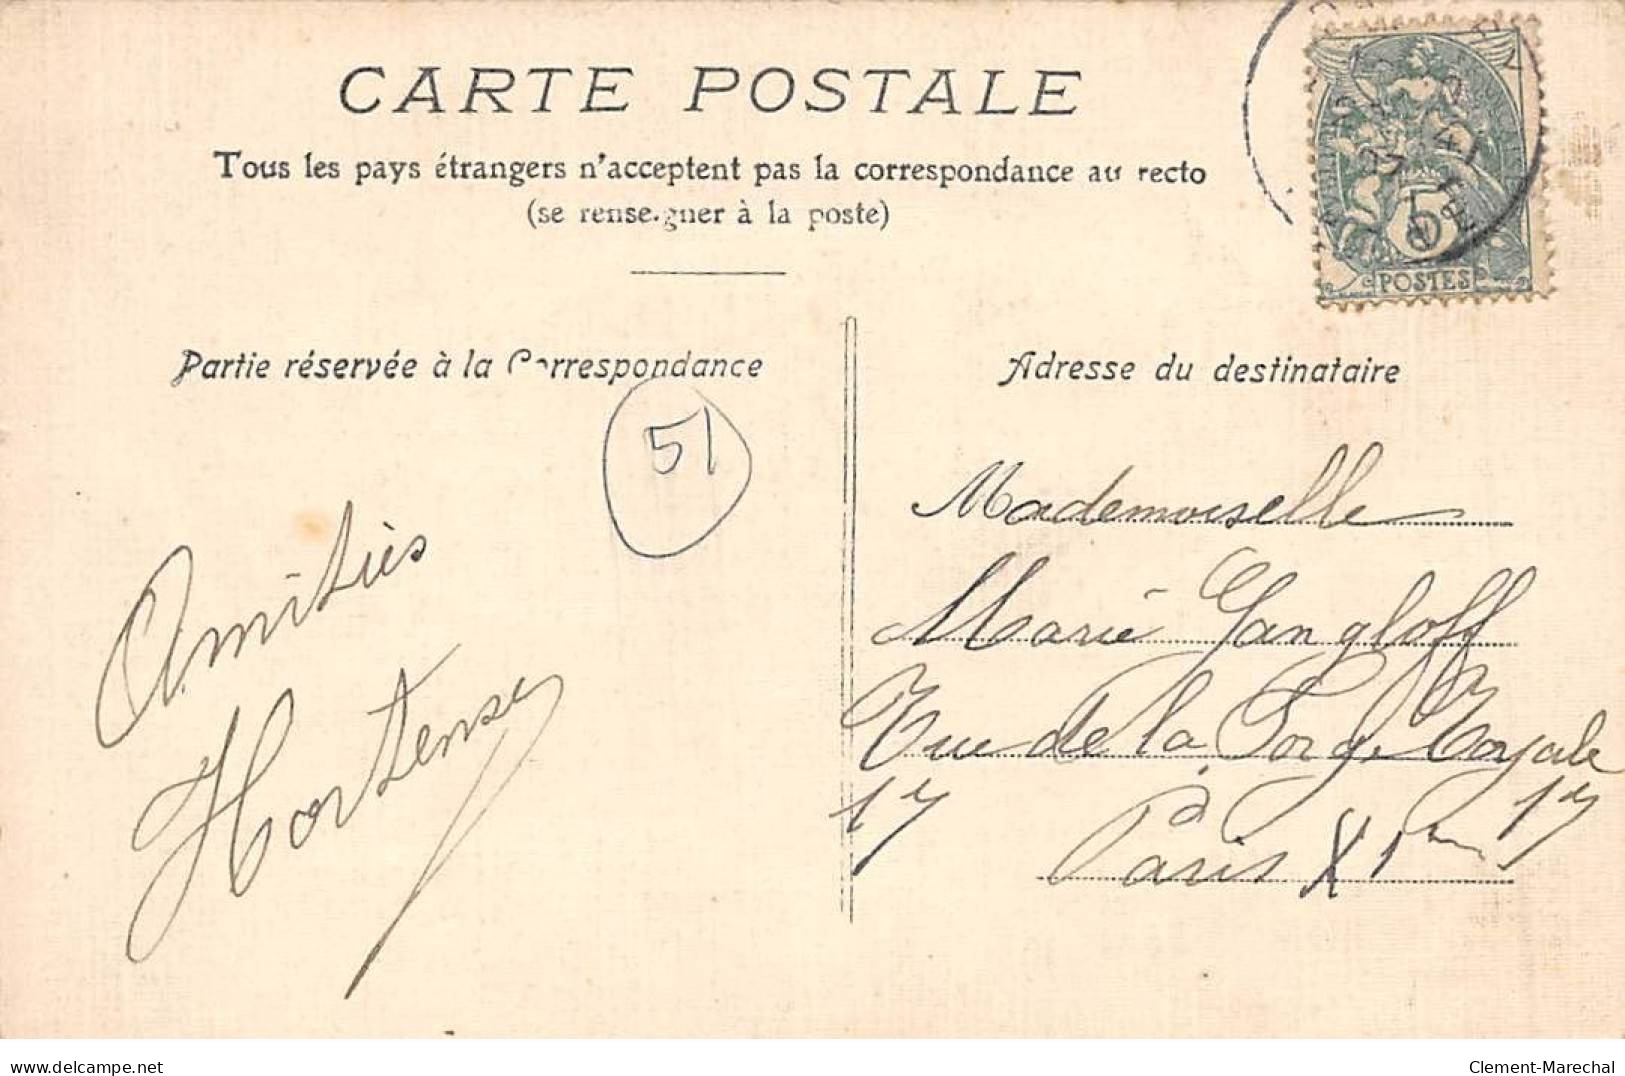 CARTE POSTALE
Tous les pays étrangers n'acceptent pas la correspondance au recto
(se renseigner à la poste)
5
POSTES
Partie réservée à la Correspondance
Adresse du destinataire
51
Amitiès
Hortense
Mademoiselle
Marie Gangloff
Rue de la Forge Royale
17 17
Paris XIème
delcampe.net
Clement-Marechal